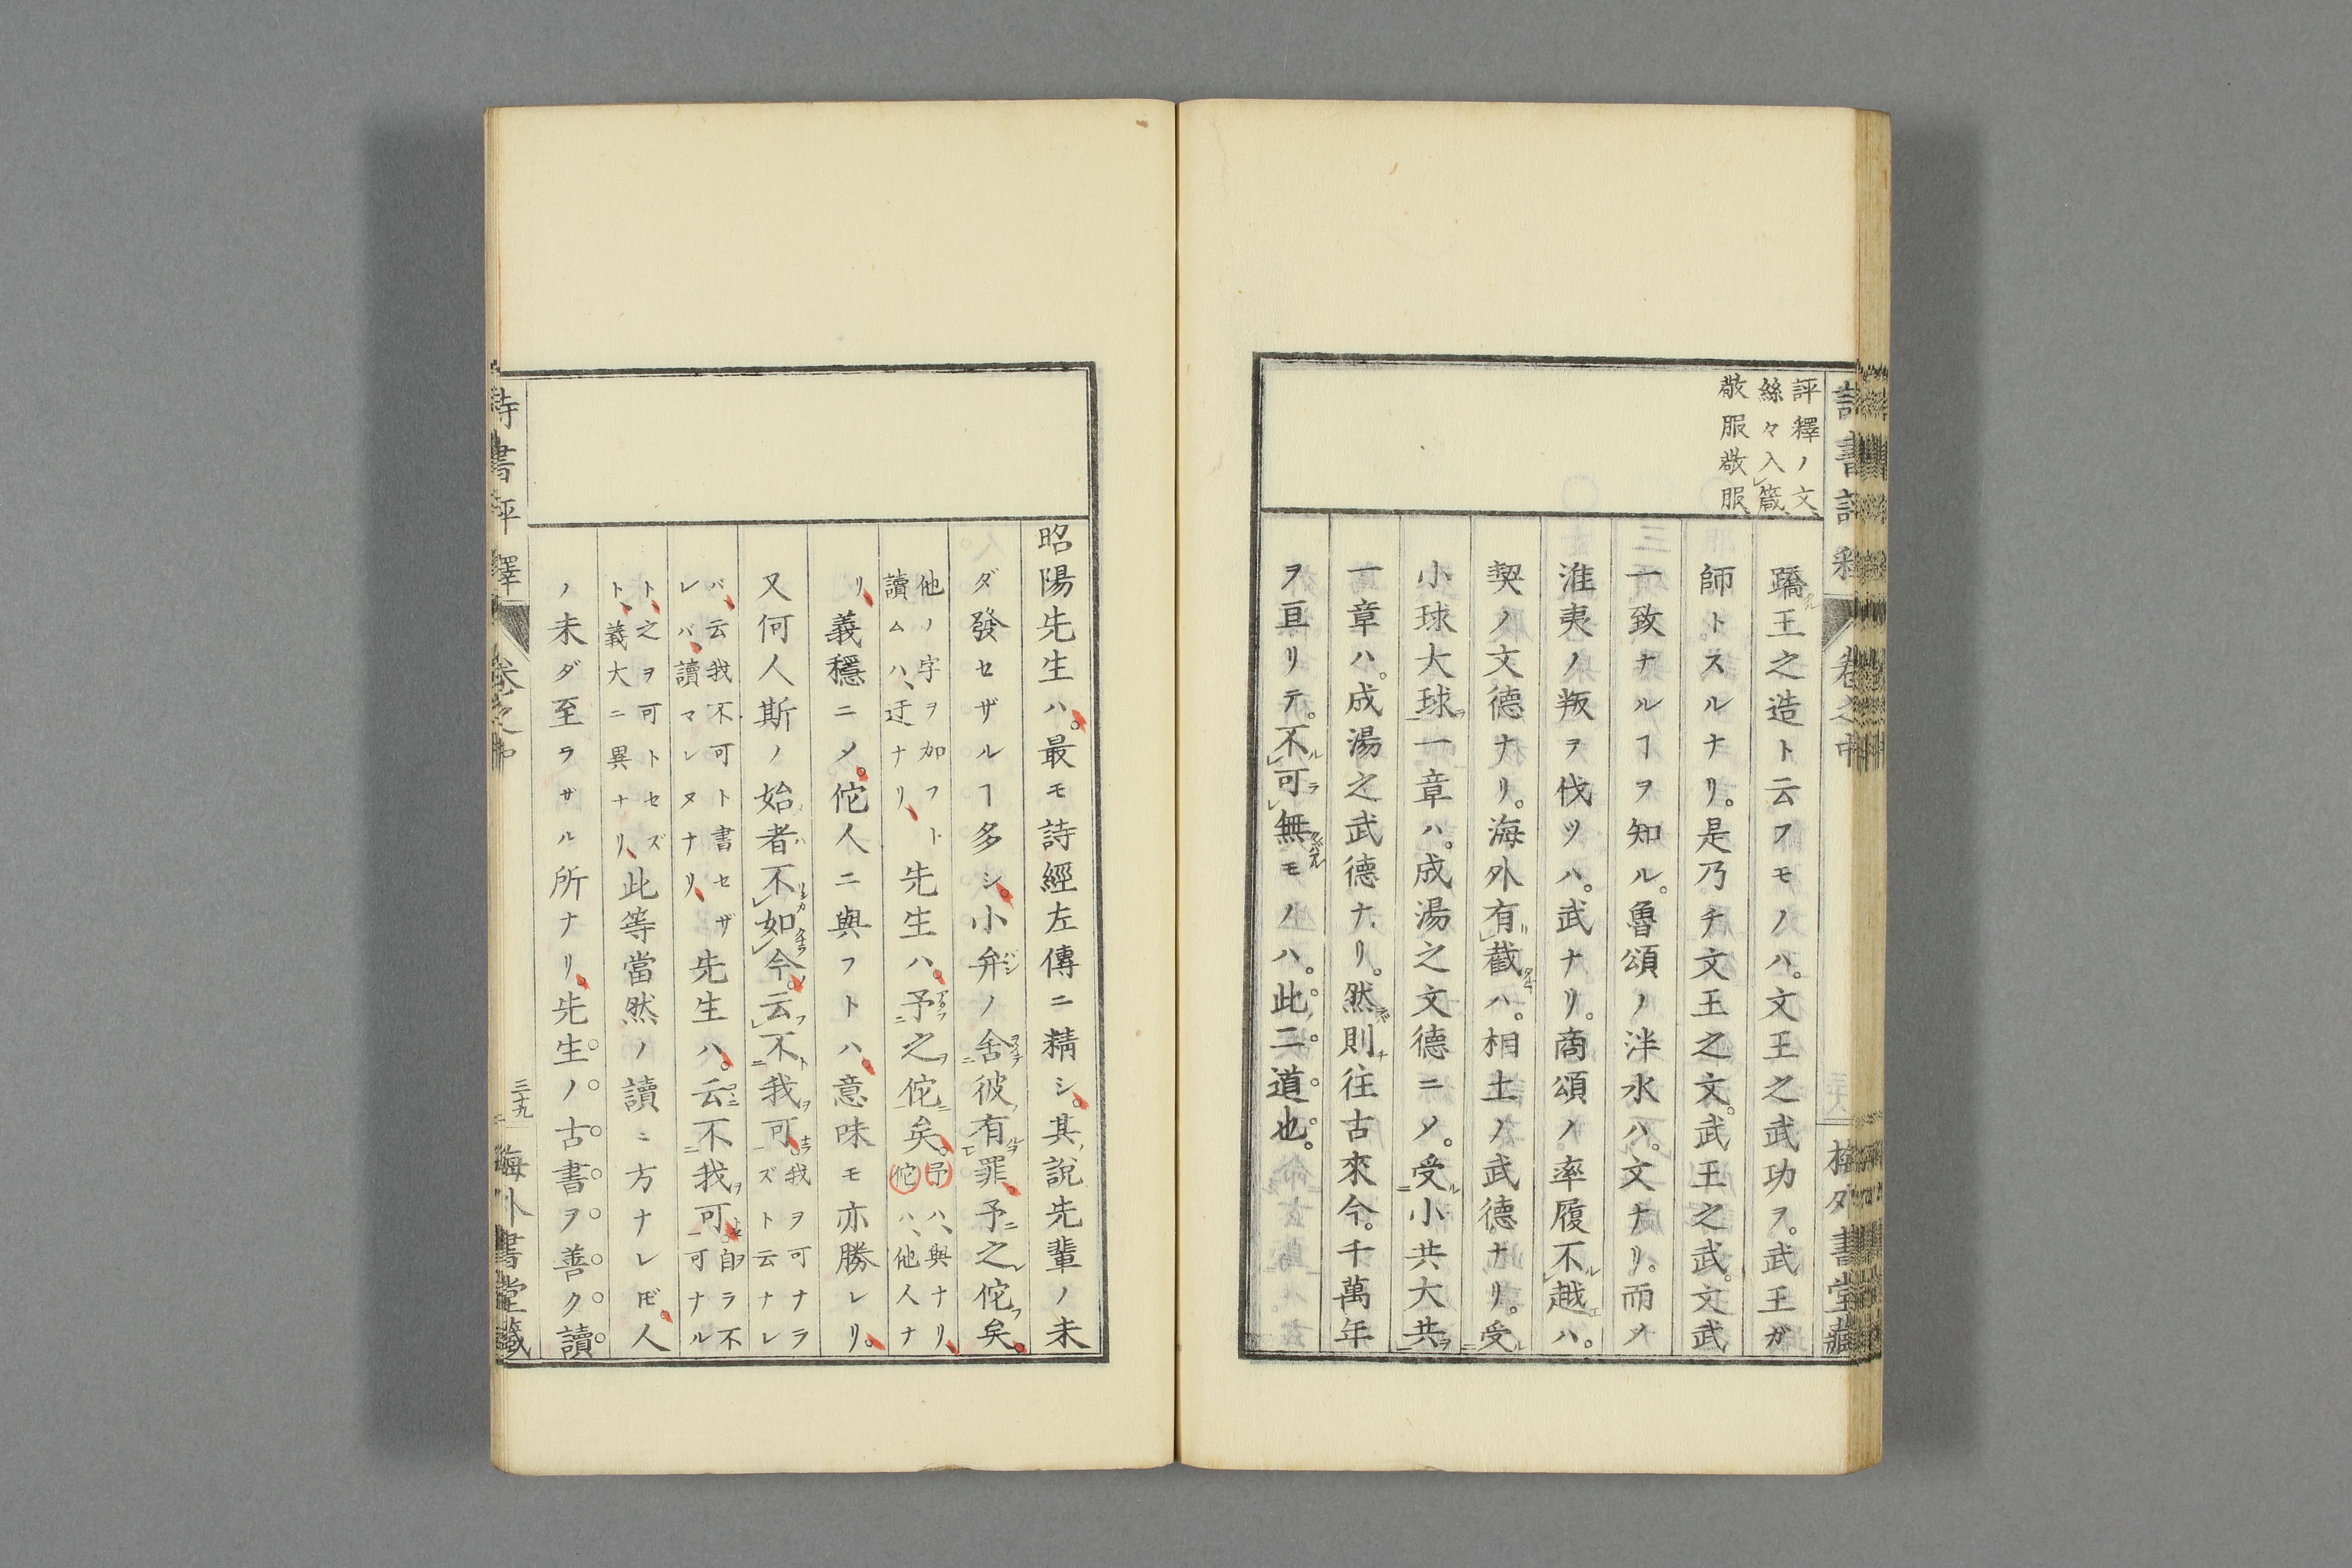 評釋ノ文
絲々入箴
敬服敬服
蹻王之造ト云フモノハ。文王之武功ヲ。武王ガ
師トスルナリ。是乃チ文王之文。武王之武。文武
一致ナルヿヲ知ル。魯頌ノ泮水ハ。文ナリ。而ノ
淮夷ノ叛ヲ伐ツハ。武ナリ。商頌ノ率履不越ハ。
契ノ文德ナリ。海外有截ハ。相土ノ武德ナリ。受
小球大球一章ハ。成湯之文德ニ〆。受小共大共
一章ハ。成湯之武德ナリ。然則往古來今。千萬年
ヲ亘リテ。不可無モノハ。此二道也。
昭陽先生ハ。最モ詩經左傳ニ精シ。其說先輩ノ未
ダ發セザルヿ多シ。小弁ノ舍彼有罪予之佗矣。
他ノ字ヲ加フト
讀ムハ、迂ナリ、
先生ハ。予之佗矣。
予ハ、與ナリ、
佗ハ、他人ナ
リ、義穩ニ〆。佗人ニ與フトハ。意味モ亦勝レリ。
又何人斯ノ始者不如今。云不我可
我ヲ可ナラ
ズト云ナレ
バ、云我不可ト書セザ
レバ、讀マレヌナリ、
先生ハ。云不我可
自ラ不
可ナル
ト、之ヲ可トセズ
ト、義大ニ異ナリ、
此等當然ノ讀ニ方ナレ𪜈。人
ノ未ダ至ラザル所ナリ。先生ノ古書ヲ善ク讀
詩書評釋 卷之中 三十九 梅外書堂藏